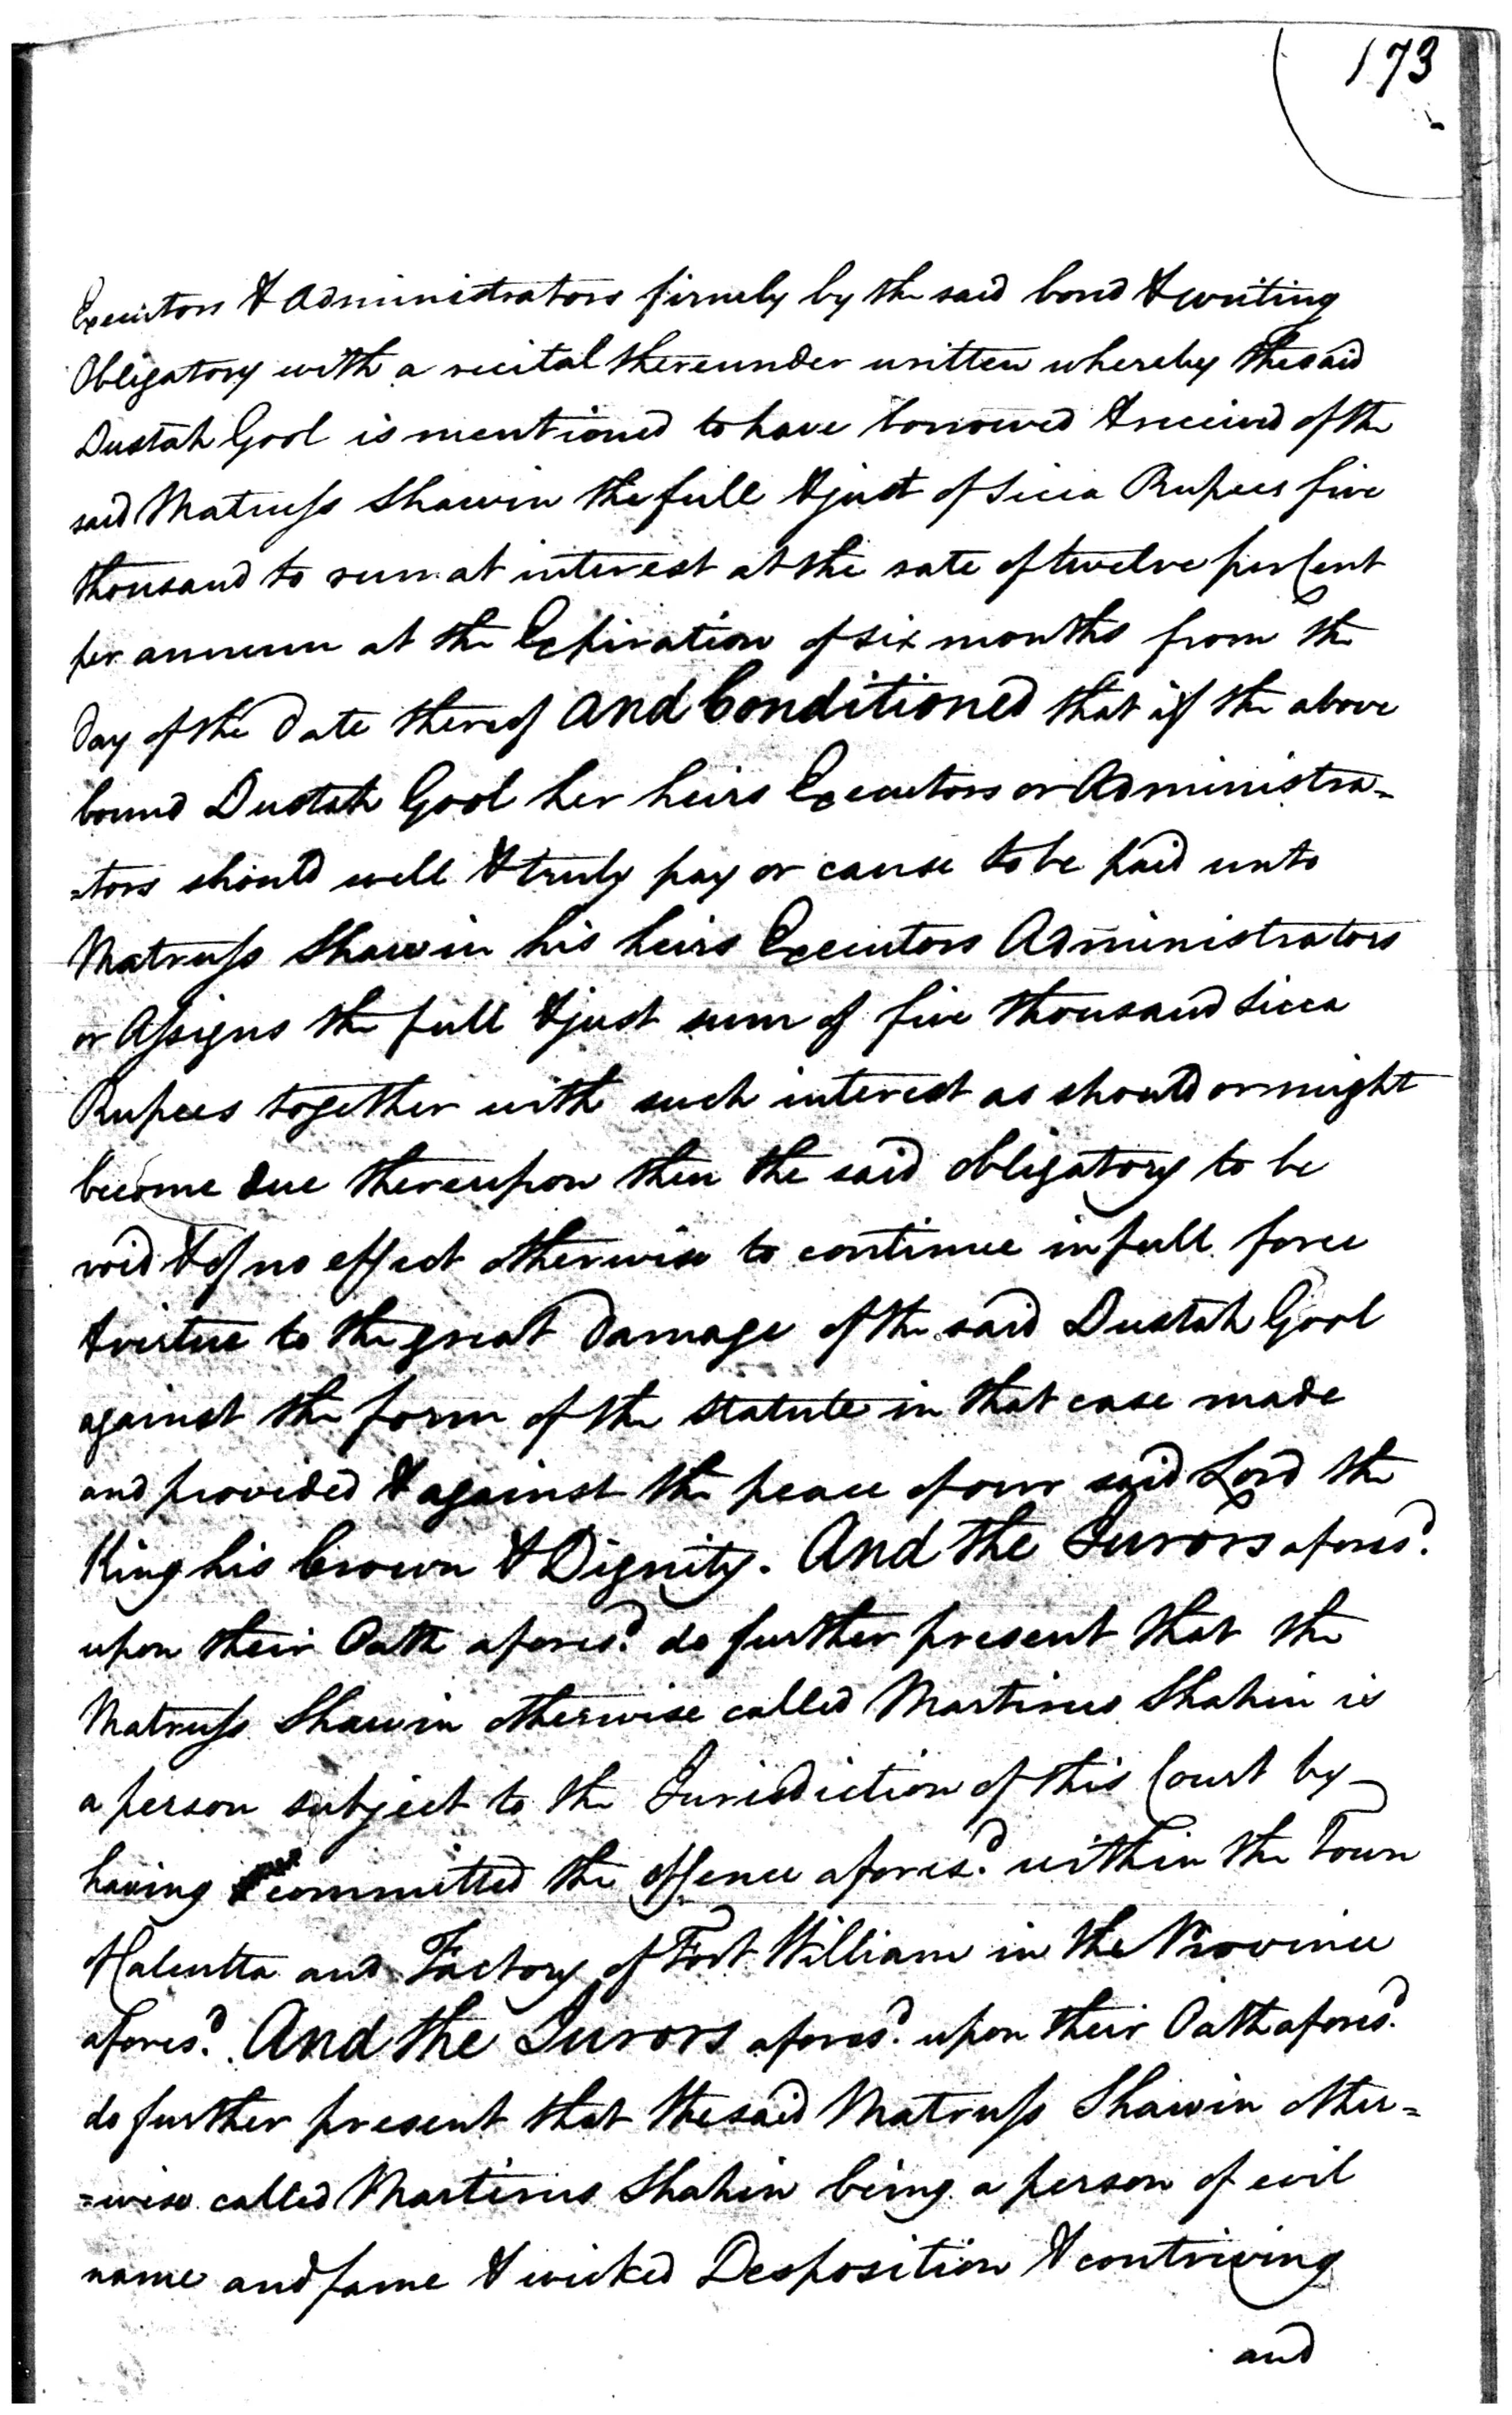 173
Executors & Administrators firmly by the said bond & writing
Obligatory with a recital thereunder written whereby the said
Dustah Gool is mentioned to have borrowed & received of the
said Matruss Shawin the full & just of Sicca Rupees five
thousand to run at interest at the rate of twelve per Cent
per annum at the Expiration of six months from the
day of the Date thereof and Conditioned that if the above
bound Dustah Gool her heirs Executors or Administra-
-tors should well & truly pay or cause to be paid unto
Matruss Shawin his heirs Executors Administrators
or Assigns the full & just sum of five thousand Sicca
Rupees together with such interest as should or might
become due thereupon then the said obligatory to be
void & of no effect otherwise to continue in full force
& virtue to the great Damage of the said Dustah Gool
against the form of the statute in that case made
and provided & against the peace of our said Lord the
King his Crown & Dignity. And the Jurors afores.d
upon their Oath afores.d do further present that the
Matruss Shawin otherwise called Martirus Shahin is
a person subject to the Jurisdiction of this Court by
having committed the offence afores.d within the Town
Calcutta and Factory of Fort William in the Province
afores.d And the Jurors afores.d upon their Oath afores.d
do further present that the said Matruss Shawin other=
=wise called Martirus Shahin being a person of evil
name and fame & wicked Desposition & contriving
and